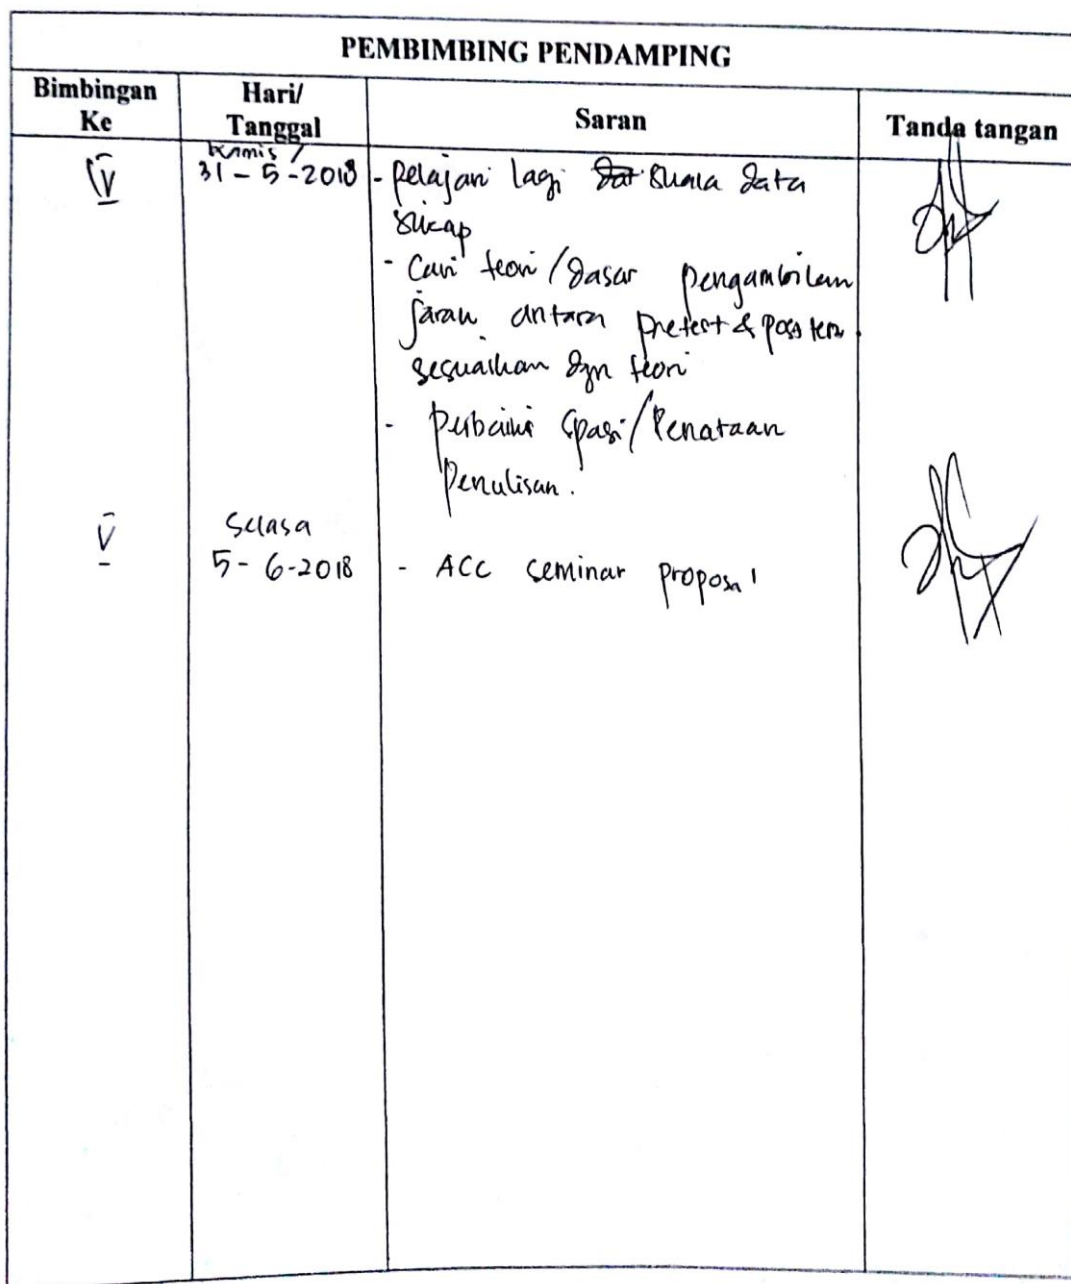 PEMBIMBING PENDAMPING
Bimbingan Ke
Hari/ Tanggal
Saran
Tanda tangan
IV
Kamis /
31 - 5 - 2018
- pelajari lagi skala data
sikap
- Cari teori / dasar pengambilan
jarak antara pretest & post test
sesuaikan dgn teori
- perbaiki spasi / Penataan
Penulisan.
V
Selasa
5 - 6 - 2018
- ACC seminar proposal